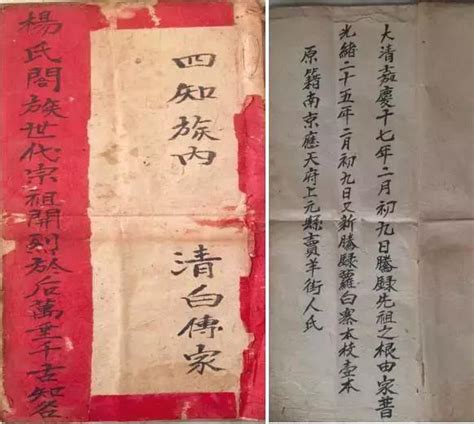 四知族內
清白傳家
楊氏閤族世代宗祖開列於后萬千古知名
大清嘉慶十七年二月初九日騰錄先祖之根由家普
光緒二十五年二月初九日又新騰錄蘿白寨本枝壹本
原籍南京應天府上元縣賣羊街人氏